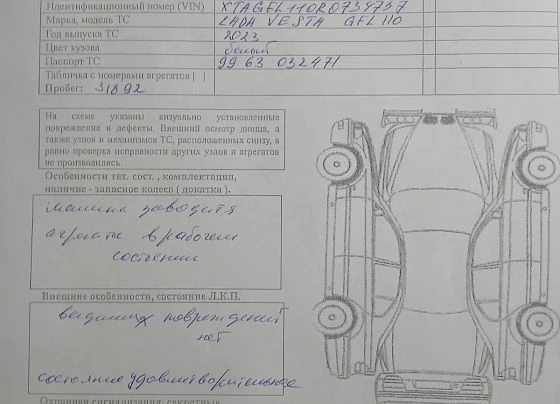 Идентификационный номер (VIN) XTAGEL110R0734737
Марка, модель ТС LADA VESTA GFL 110
Год выпуска ТС 2023
Цвет кузова белый
Паспорт ТС 99 63 032471
Табличка с номерами агрегатов | |
Пробег: 31892
На схеме указаны визуально установленные
повреждения и дефекты. Внешний осмотр днища, а
также узлов и механизмов ТС, расположенных снизу, а
равно проверка исправности других узлов и агрегатов
не производились.
Особенности тех. сост. , комплектации,
наличие - запасное колесо ( докатки ).
машина заводится
агрегаты в рабочем
состоянии
Внешние особенности, состояние Л.К.П.
видимых повреждений
нет
состояние удовлетворительное
Охранная сигнализация, секретные